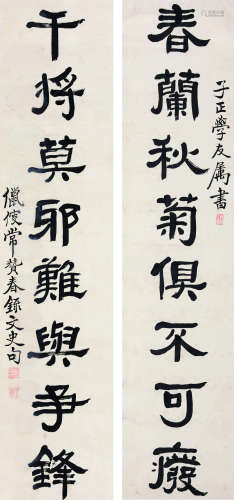 子正學友属書
春蘭秋菊俱不可癈
干將莫邪難與爭鋒
儠傁常贊春錄文史句